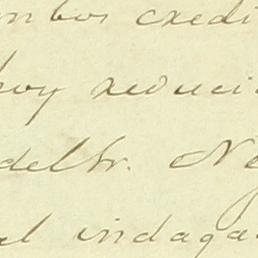 mbos credi
hoy reduci
del Sr. Ne
el indaga